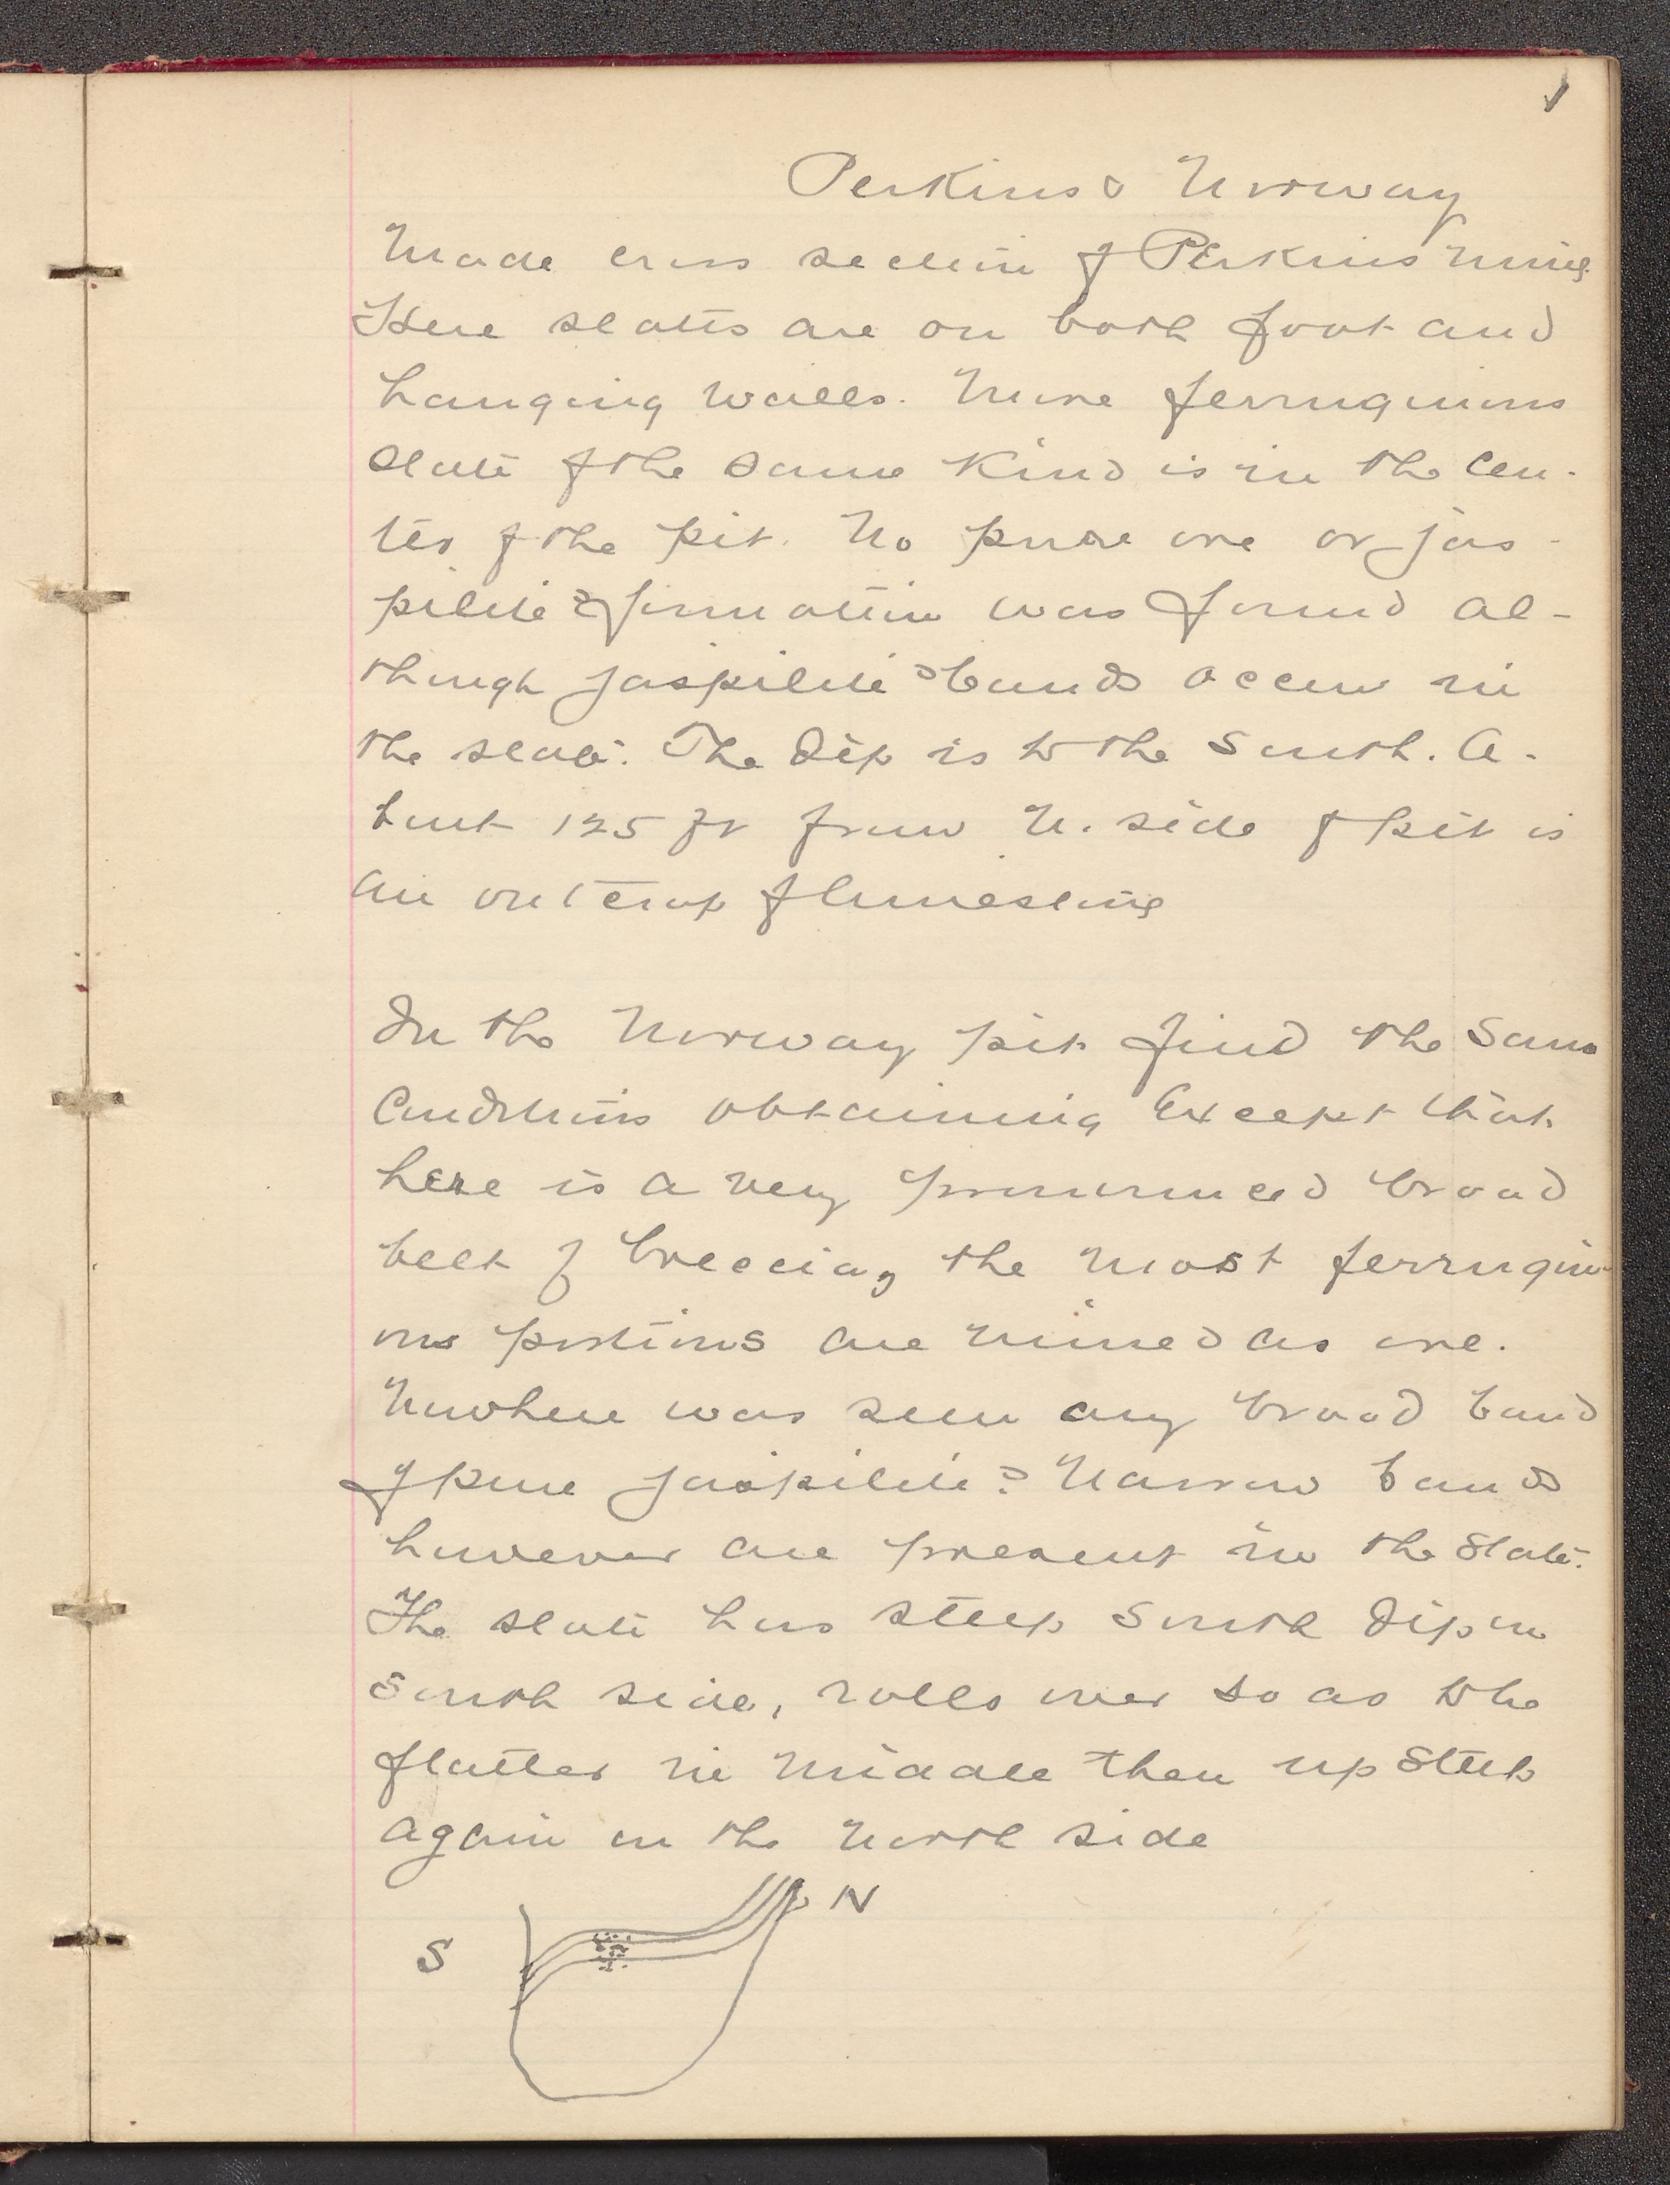 1
Perkins & Norway
Made cross section of Perkins Mine
Here slates are on both foot and
hanging walls. More ferruginous
slate of the same kind is in the cen-
ter of the pit. No pure ore or jas-
pilite? formation was found al-
though jaspilite? bands occur in
the slate. The dip is to the South. A-
bout 125 ft from N. side of pit is
an outcrop of limestone
In the Norway pit find the same
Conditions obtaining Except that
here is a very pronounced broad
belt of breccia, the most ferrugin-
ous portions are mined as ore.
Nowhere was seen any broad band
of pure jaspilite? Narrow bands
however are present in the slate.
The slate has steep South dip on
South side, rolls over so as to be
flatter in middle then up steep
again on the North side
N
S